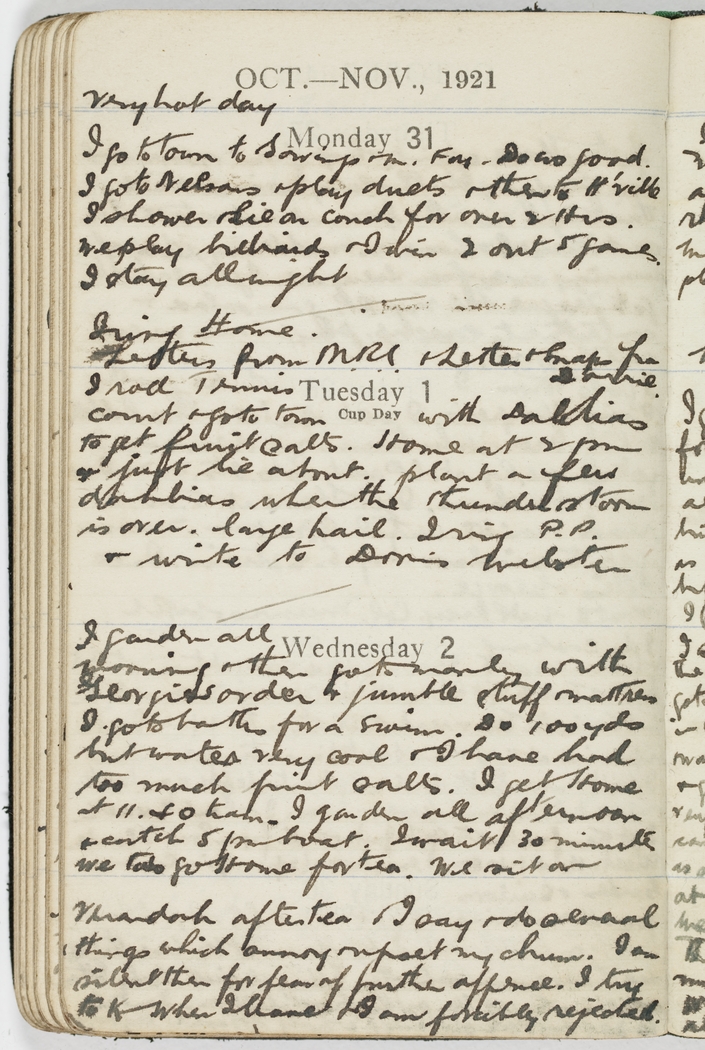 OCT.—NOV., 1921
Very hot day
Monday 31
I go to town to . Do no good.
I go to Nelsons & play duets & then to H'ville
I shower & lie on couch for over 2 Hrs.
we play billiards & I win 2 out 5 games.
I stay all night
I ring Home.
Letters from & Letter & Snaps fra
Dorrie
I rod Tennis
Tuesday 1
Cup Day
court & go to town with Dahlias
to get fruit salts. Home at 2 pm
& just lie about. plant a few
dahlias when the thunderstorm
is over. large hail. I ring P.P.
& write to Doris Webster
I garden all
Wednesday 2
morning & then go to manly with
Georgies order & jumble stuff & mattress
I go to baths for a swim. Do 100 yds
but water very cool & I have had
too much fruit salts. I get Home
at 11.40 tram. I garden all afternoon
& catch 5 pm boat. I wait 30 minutes
we go Home for tea. We sit on
Verandah after tea & I say & do several
things which annoy & upset my chum. I am
silent then for fear of further offence. I try
to K when I leave & I am forcibly rejected.